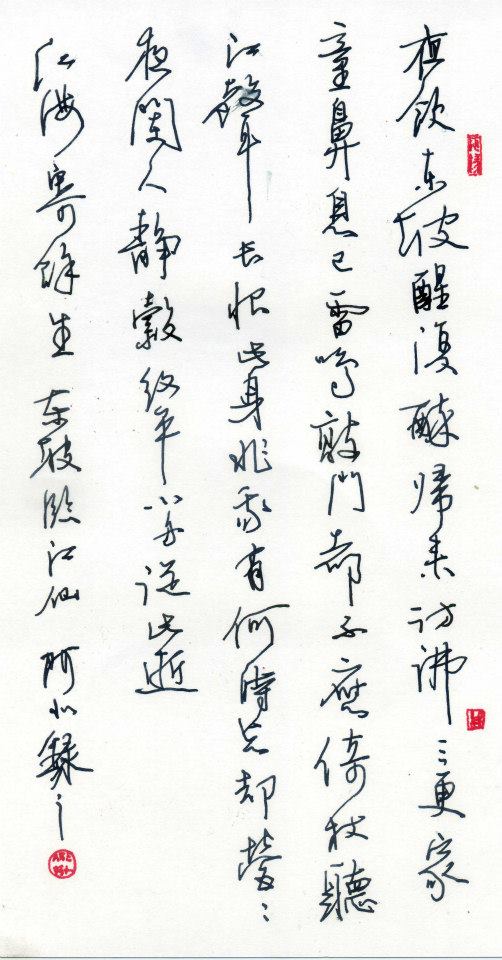 夜飲东坡醒復醉帰来彷彿三更家
童鼻息已雷鳴敲門都不應倚杖聽
江聲長恨此身非我有何時忘却營々
夜闌人靜縠紋平小舟從此逝
江海寄餘生 东坡臨江仙 阿錄之